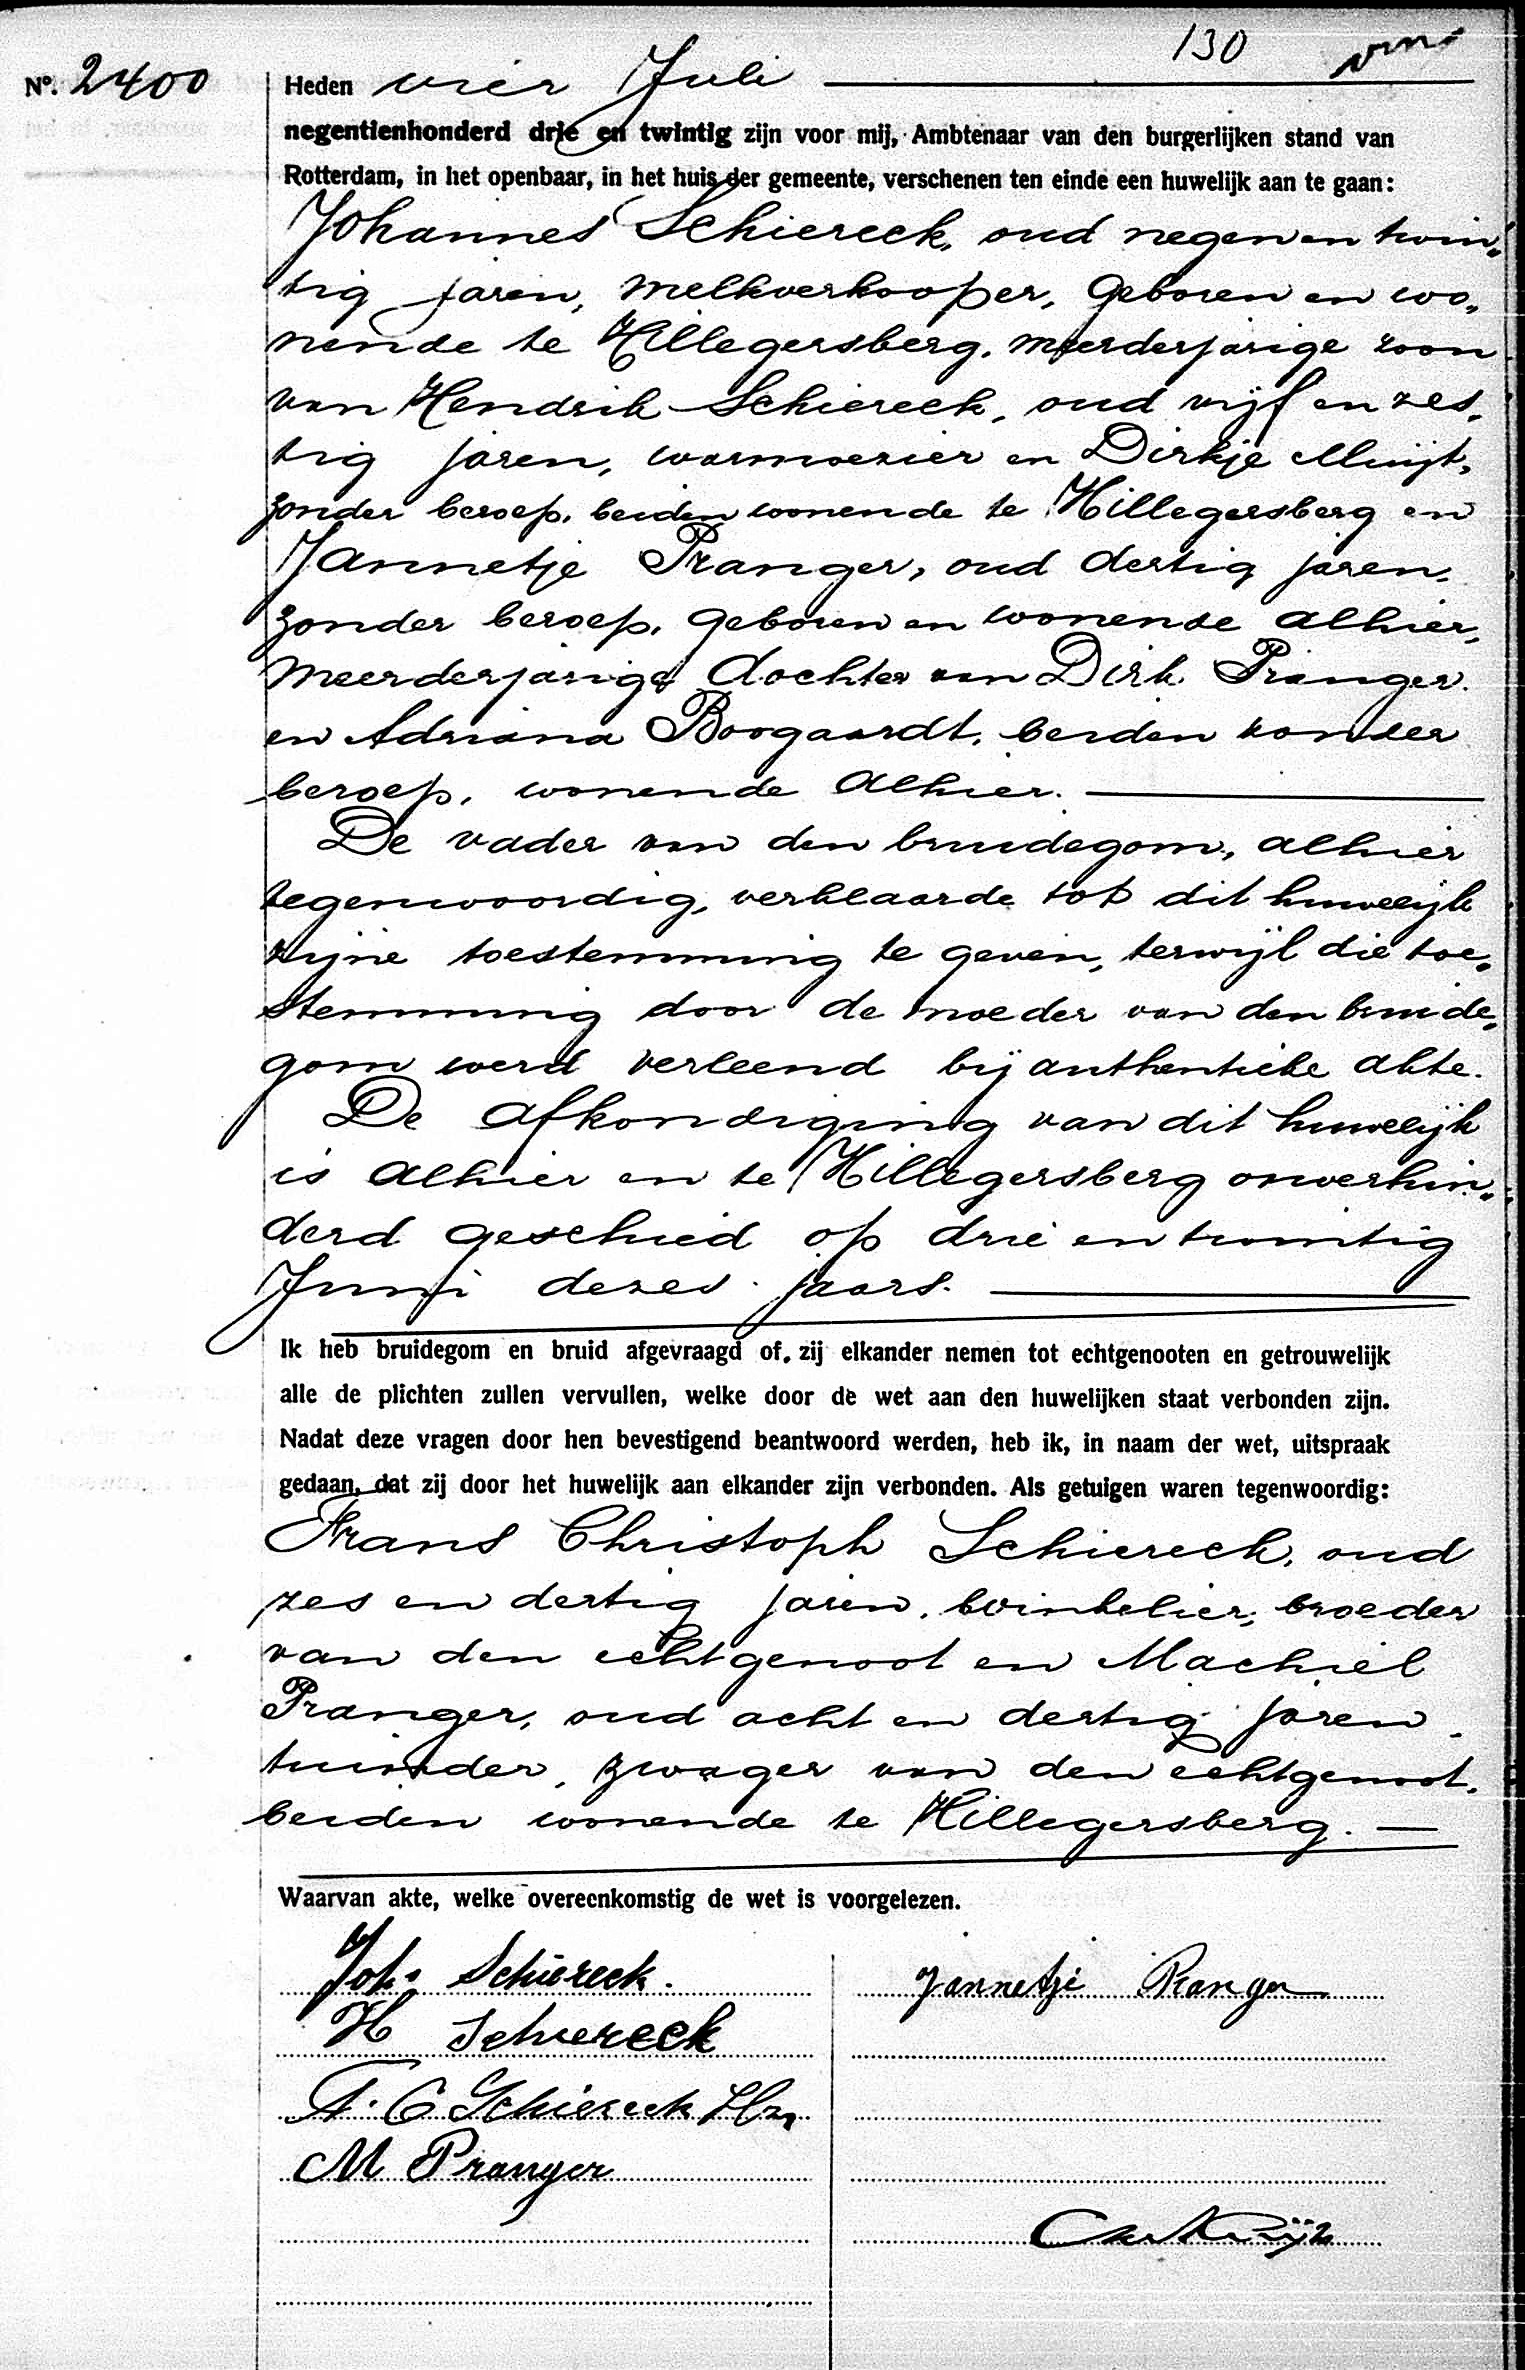 130
Nº. 2400 Heden vier Juli
negentienhonderd drie en twintig zijn voor mij, Ambtenaar van den burgerlijken stand van
Rotterdam, in het openbaar, in het huis der gemeente, verschenen ten einde een huwelijk aan te gaan:
Johannes Schiereck, oud negen en twin„
tig jaren, melkverkooper, geboren en wo„
nende te Hillegersberg, meerderjarige zoon
van Hendrik Schiereck, oud vijf en zes„
tig jaren, warmoezier en Dirkje Muijt,
zonder beroep, beiden wonende te Hillegersberg en
Jannetje Pranger, oud dertig jaren,
zonder beroep, geboren en wonende alhier,
meerderjarige dochter van Dirk Pranger
en Adriana Boogaardt, beiden zonder
beroep, wonende alhier.
De vader van den bruidegom, alhier
tegenwoordig, verklaarde tot dit huwelijk
zijne toestemming te geven, terwijl die toe„
stemming door de moeder van den bruide„
gom werd verleend bij authentieke akte.
De afkondiging van dit huwelijk
is alhier en te Hillegersberg onverhin„
derd geschied op drie en twintig
Juni dezes jaars.
Ik heb bruidegom en bruid afgevraagd of zij elkander nemen tot echtgenooten en getrouwelijk
alle de plichten zullen vervullen, welke door de wet aan den huwelijken staat verbonden zijn.
Nadat deze vragen door hen bevestigend beantwoord werden, heb ik, in naam der wet, uitspraak
gedaan, dat zij door het huwelijk aan elkander zijn verbonden. Als getuigen waren tegenwoordig:
Frans Christoph Schiereck, oud
zes en dertig jaren, winkelier, broeder
van den echtgenoot en Machiel
Pranger, oud acht en dertig jaren,
tuinder, zwager van den echtgenoot,
beiden wonende te Hillegersberg.
Waarvan akte, welke overeenkomstig de wet is voorgelezen.
Joh. Schiereck. Jannetje Pranger
H Schiereck
F. C Schiereck Hzn
M Pranger